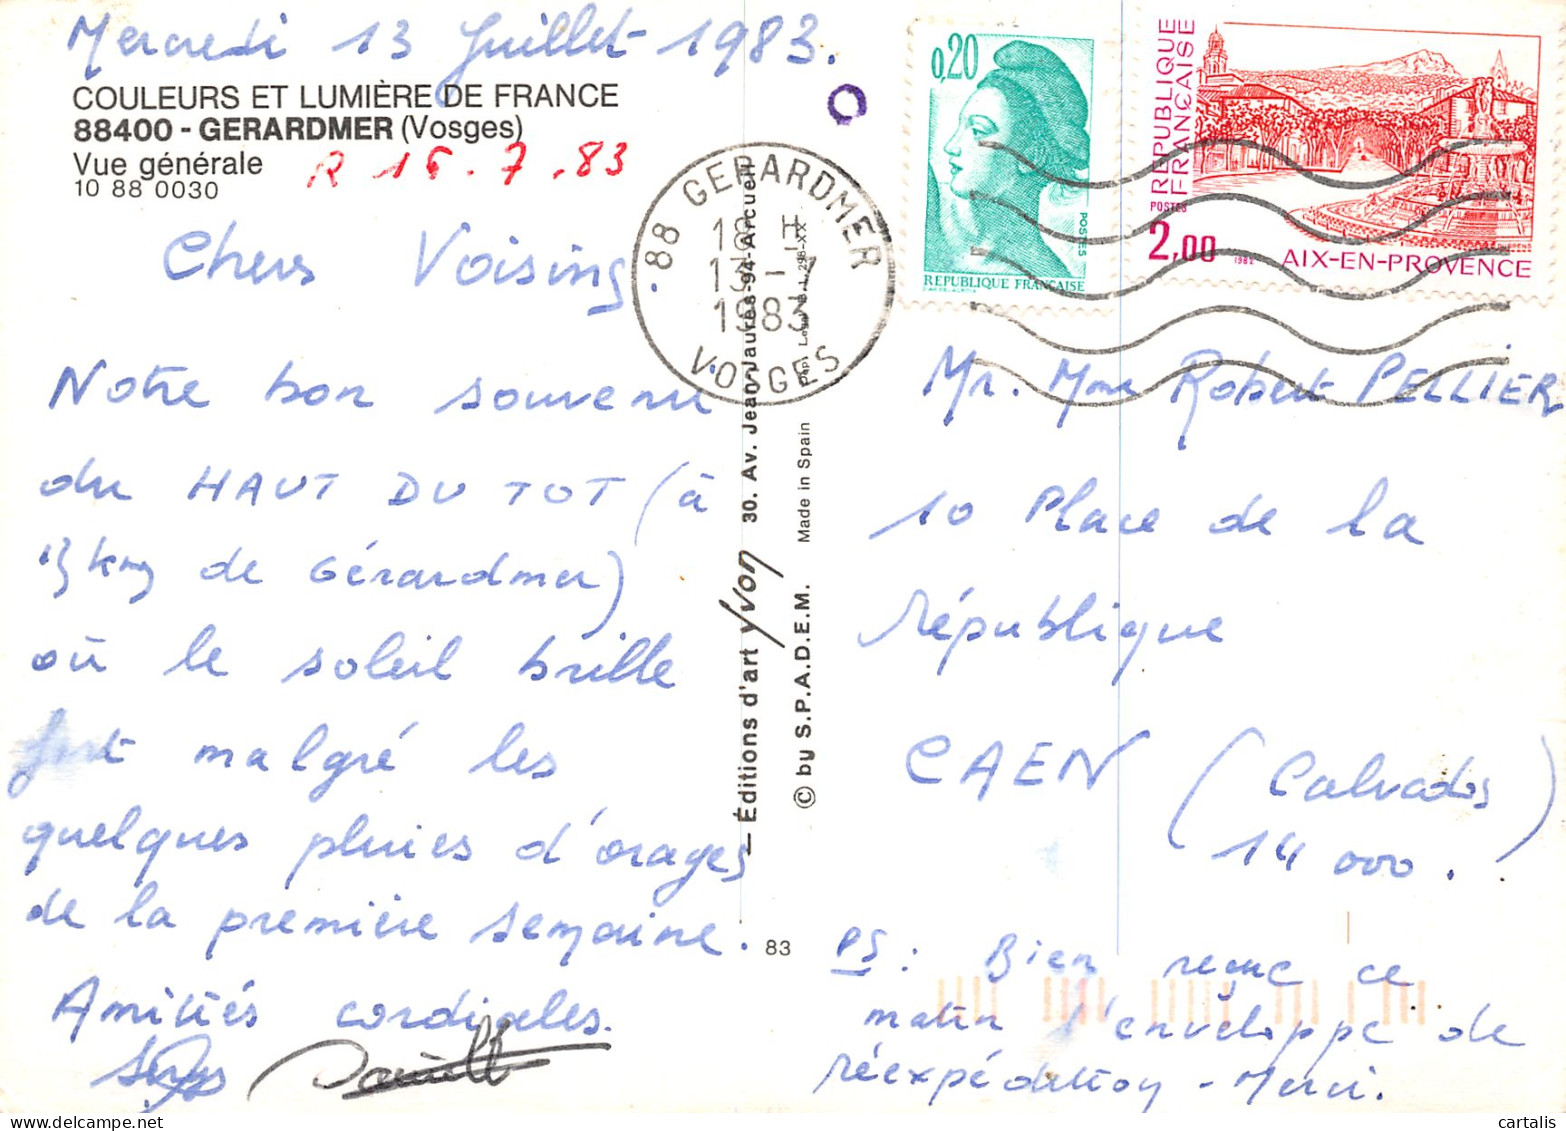 Mercredi 13 Juillet 1983.
COULEURS ET LUMIÈRE DE FRANCE
88400 - GERARDMER (Vosges)
Vue générale
10 88 0030
R 15.7.83
Chers Voisins,
Notre bon souvenir
du HAUT DU TOT (à
13 kms de Gérardmer)
où le soleil brille
fort malgré les
quelques pluies d'orages
de la première semaine.
Amitiés cordiales.
— Éditions d'art Yvon 30. Av. Jean-Jaurès-94-Arcueil
© by S.P.A.D.E.M. Made in Spain
83
88 GERARDMER
13 - 7
1983
VOSGES
0,20
POSTES
REPUBLIQUE FRANÇAISE
REPUBLIQUE
FRANÇAISE
POSTES
2,00
1982
AIX-EN-PROVENCE
Mr. Mme Robert PELLIER
10 Place de la
République
CAEN (Calvados)
14 000.
PS : Bien reçue ce
matin l'enveloppe de
réexpédition - Merci.
cartalis